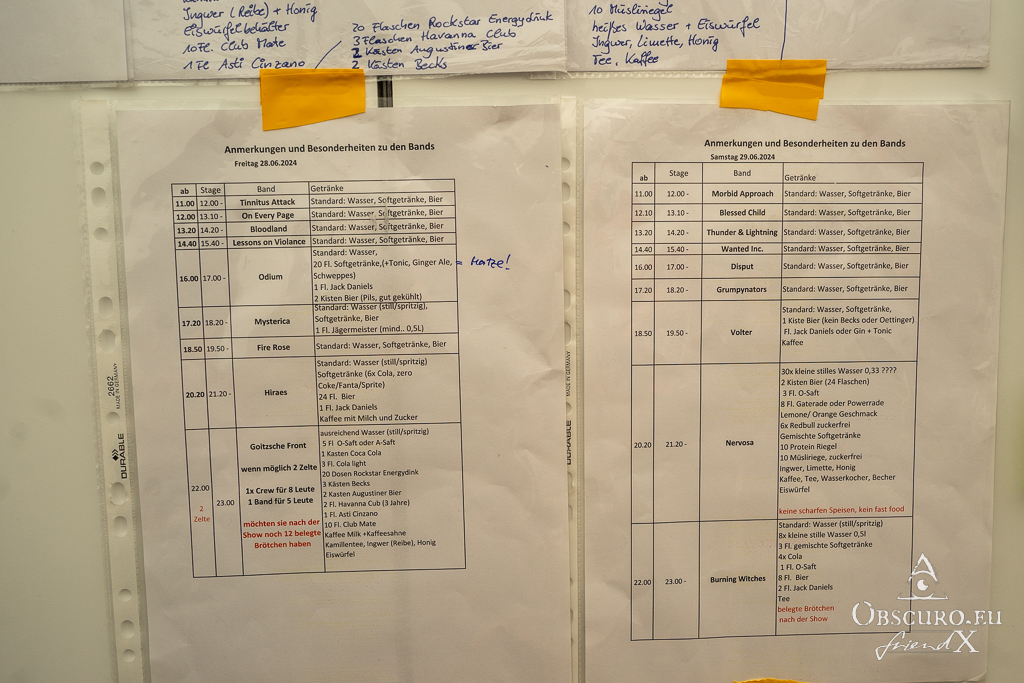 Ingwer (Reibe) + Honig
Eiswürfelbehälter
10 Fl. Club Mate
1 Fl Asti Cinzano
20 Flaschen Rockstar Energydrink
3 Flaschen Havanna Club
2 Kästen Augustiner Bier
2 Kästen Becks
10 Müsliriegel
heißes Wasser + Eiswürfel
Ingwer, Limette, Honig
Tee, Kaffee
Anmerkungen und Besonderheiten zu den Bands
Freitag 28.06.2024
ab Stage Band Getränke
11.00 12.00 - Tinnitus Attack Standard: Wasser, Softgetränke, Bier
12.00 13.10 - On Every Page Standard: Wasser, Softgetränke, Bier
13.20 14.20 - Bloodland Standard: Wasser, Softgetränke, Bier
14.40 15.40 - Lessons on Violance Standard: Wasser, Softgetränke, Bier
16.00 17.00 - Odium Standard: Wasser,
20 Fl. Softgetränke,(+Tonic, Ginger Ale, = Hatze!
Schweppes)
1 Fl. Jack Daniels
2 Kisten Bier (Pils, gut gekühlt)
17.20 18.20 - Mysterica Standard: Wasser (still/spritzig),
Softgetränke, Bier
1 Fl. Jägermeister (mind.. 0,5L)
18.50 19.50 - Fire Rose Standard: Wasser, Softgetränke, Bier
20.20 21.20 - Hiraes Standard: Wasser (still/spritzig)
Softgetränke (6x Cola, zero
Coke/Fanta/Sprite)
24 Fl. Bier
1 Fl. Jack Daniels
Kaffee mit Milch und Zucker
22.00
2
Zelte
23.00
Goitzsche Front
wenn möglich 2 Zelte
1x Crew für 8 Leute
1 Band für 5 Leute
möchten sie nach der
Show noch 12 belegte
Brötchen haben
ausreichend Wasser (still/spritzig)
5 Fl O-Saft oder A-Saft
1 Kasten Coca Cola
3 Fl. Cola light
20 Dosen Rockstar Energydink
3 Kästen Becks
2 Kasten Augustiner Bier
2 Fl. Havanna Cub (3 Jahre)
1 Fl. Asti Cinzano
10 Fl. Club Mate
Kaffee Milk +Kaffeesahne
Kamillentee, Ingwer (Reibe), Honig
Eiswürfel
2662
MADE IN GERMANY
DURABLE
Anmerkungen und Besonderheiten zu den Bands
Samstag 29.06.2024
ab Stage Band Getränke
11.00 12.00 - Morbid Approach Standard: Wasser, Softgetränke, Bier
12.10 13.10 - Blessed Child Standard: Wasser, Softgetränke, Bier
13.20 14.20 - Thunder & Lightning Standard: Wasser, Softgetränke, Bier
14.40 15.40 - Wanted Inc. Standard: Wasser, Softgetränke, Bier
16.00 17.00 - Disput Standard: Wasser, Softgetränke, Bier
17.20 18.20 - Grumpynators Standard: Wasser, Softgetränke, Bier
18.50 19.50 - Volter Standard: Wasser, Softgetränke,
1 Kiste Bier (kein Becks oder Oettinger)
Fl. Jack Daniels oder Gin + Tonic
Kaffee
20.20 21.20 - Nervosa 30x kleine stilles Wasser 0,33 ????
2 Kisten Bier (24 Flaschen)
3 Fl. O-Saft
8 Fl. Gaterade oder Powerrade
Lemone/ Orange Geschmack
6x Redbull zuckerfrei
Gemischte Softgetränke
10 Protein Riegel
10 Müsliriege, zuckerfrei
Ingwer, Limette, Honig
Kaffee, Tee, Wasserkocher, Becher
Eiswürfel
keine scharfen Speisen, kein fast food
22.00 23.00 - Burning Witches Standard: Wasser (still/spritzig)
8x kleine stille Wasser 0,5l
3 Fl. gemischte Softgetränke
4x Cola
1 Fl. O-Saft
8 Fl. Bier
2 Fl. Jack Daniels
Tee
belegte Brötchen
nach der Show
MADE IN GERMANY
DURABLE
Obscuro.eu
friendX